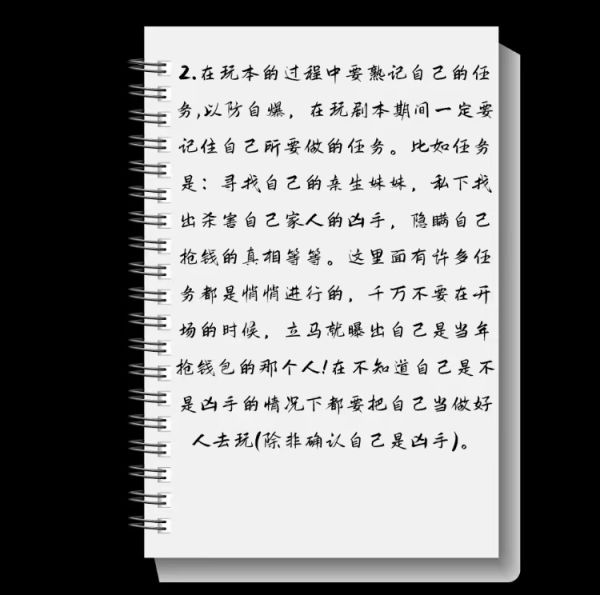 2.在玩本的过程中要熟记自己的任
务,以防自爆，在玩剧本期间一定要
记住自己所要做的任务。比如任务
是：寻找自己的亲生妹妹，私下找
出杀害自己家人的凶手，隐瞒自己
抢钱的真相等等。这里面有许多任
务都是悄悄进行的，千万不要在开
场的时候，立马就曝出自己是当年
抢钱包的那个人!在不知道自己是不
是凶手的情况下都要把自己当做好
人去玩(除非确认自己是凶手)。